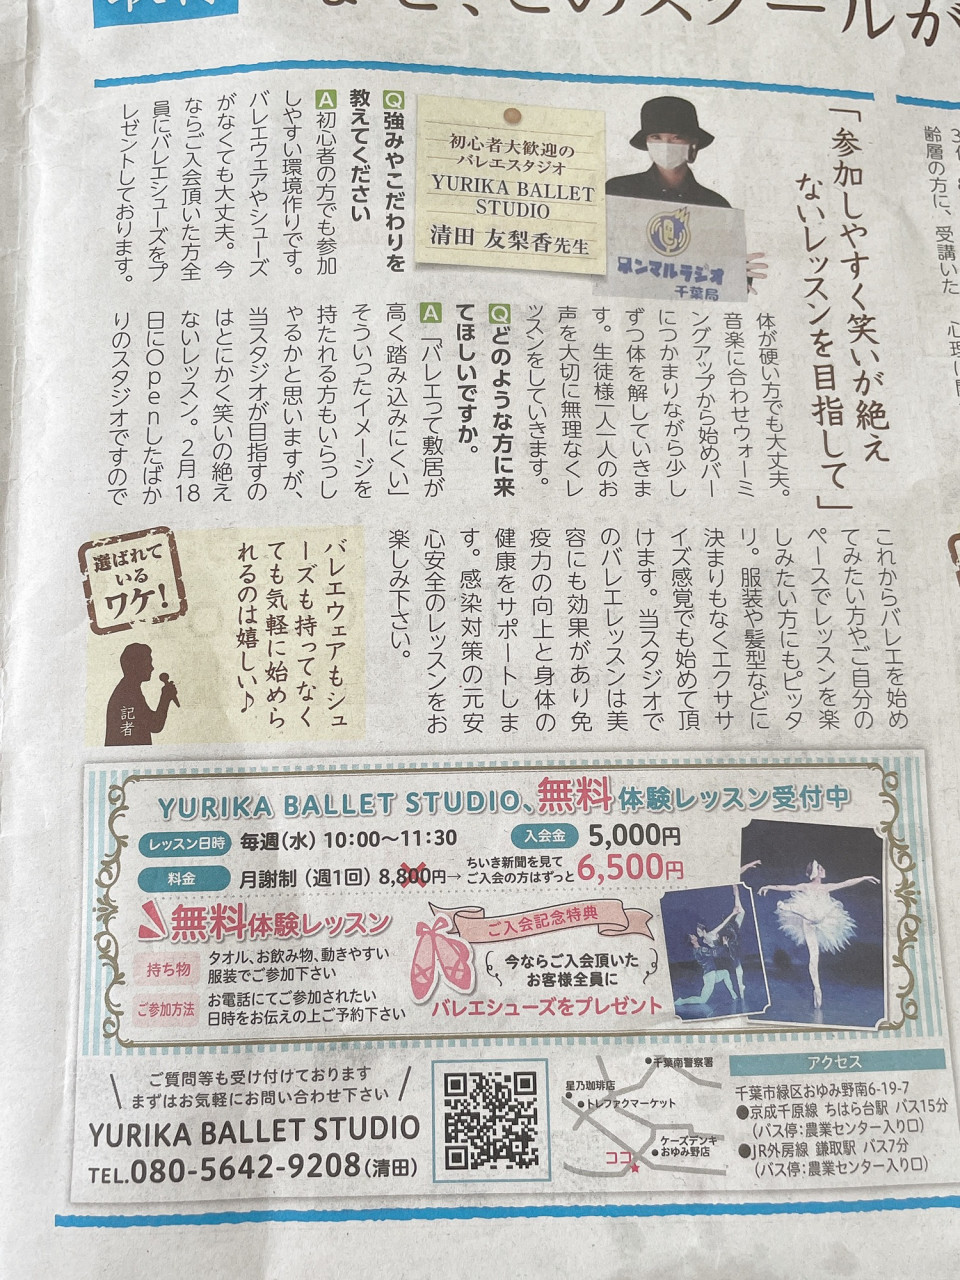 まで、このスクールが
「参加しやすく笑いが絶え
ないレッスンを目指して」
初心者大歓迎の
バレエスタジオ
YURIKA BALLET
STUDIO
清田 友梨香先生
ボンマルラジオ
千葉局
Q強みやこだわりを
教えてください
A初心者の方でも参加
しやすい環境作りです。
バレエウェアやシューズ
がなくても大丈夫。今
ならご入会頂いた方全
員にバレエシューズをプ
レゼントしております。
体が硬い方でも大丈夫。
音楽に合わせウォーミ
ングアップから始めバー
につかまりながら少し
ずつ体を解していきま
す。生徒様一人一人のお
声を大切に無理なくレ
ッスンをしていきます。
Qどのような方に来
てほしいですか。
A「バレエって敷居が
高く踏み込みにくい」
そういったイメージを
持たれる方もいらっし
やるかと思いますが、
当スタジオが目指すの
はとにかく笑いの絶え
ないレッスン。2月18
日にOpenしたばか
りのスタジオですので
これからバレエを始め
てみたい方やご自分の
ペースでレッスンを楽
しみたい方にもピッタ
リ。服装や髪型などに
決まりもなくエクササ
イズ感覚でも始めて頂
けます。当スタジオで
のバレエレッスンは美
容にも効果があり免
疫力の向上と身体の
健康をサポートしま
す。感染対策の元安
心安全のレッスンをお
楽しみ下さい。
選ばれて
いる
ワケ!
バレエウェアもシュ
ーズも持ってなく
ても気軽に始めら
れるのは嬉しい♪
記者
YURIKA BALLET STUDIO、無料体験レッスン受付中
レッスン日時 毎週(水) 10:00〜11:30 入会金 5,000円
料金 月謝制 (週1回) 8,800円→ ちいき新聞を見て
ご入会の方はずっと 6,500円
無料体験レッスン
持ち物 タオル、お飲み物、動きやすい
服装でご参加下さい
ご参加方法 お電話にてご参加されたい
日時をお伝えの上ご予約下さい
ご入会記念特典
今ならご入会頂いた
お客様全員に
バレエシューズをプレゼント
ご質問等も受け付けております
まずはお気軽にお問い合わせ下さい
YURIKA BALLET STUDIO
TEL.080-5642-9208(清田)
千葉南警察署
星乃珈琲店
トレファクマーケット
ケーズデンキ
おゆみ野店
ココ
アクセス
千葉市緑区おゆみ野南6-19-7
●京成千原線 ちはら台駅 バス15分
(バス停:農業センター入り口)
●JR外房線 鎌取駅 バス7分
(バス停:農業センター入り口)
齢層の方に、受講いた